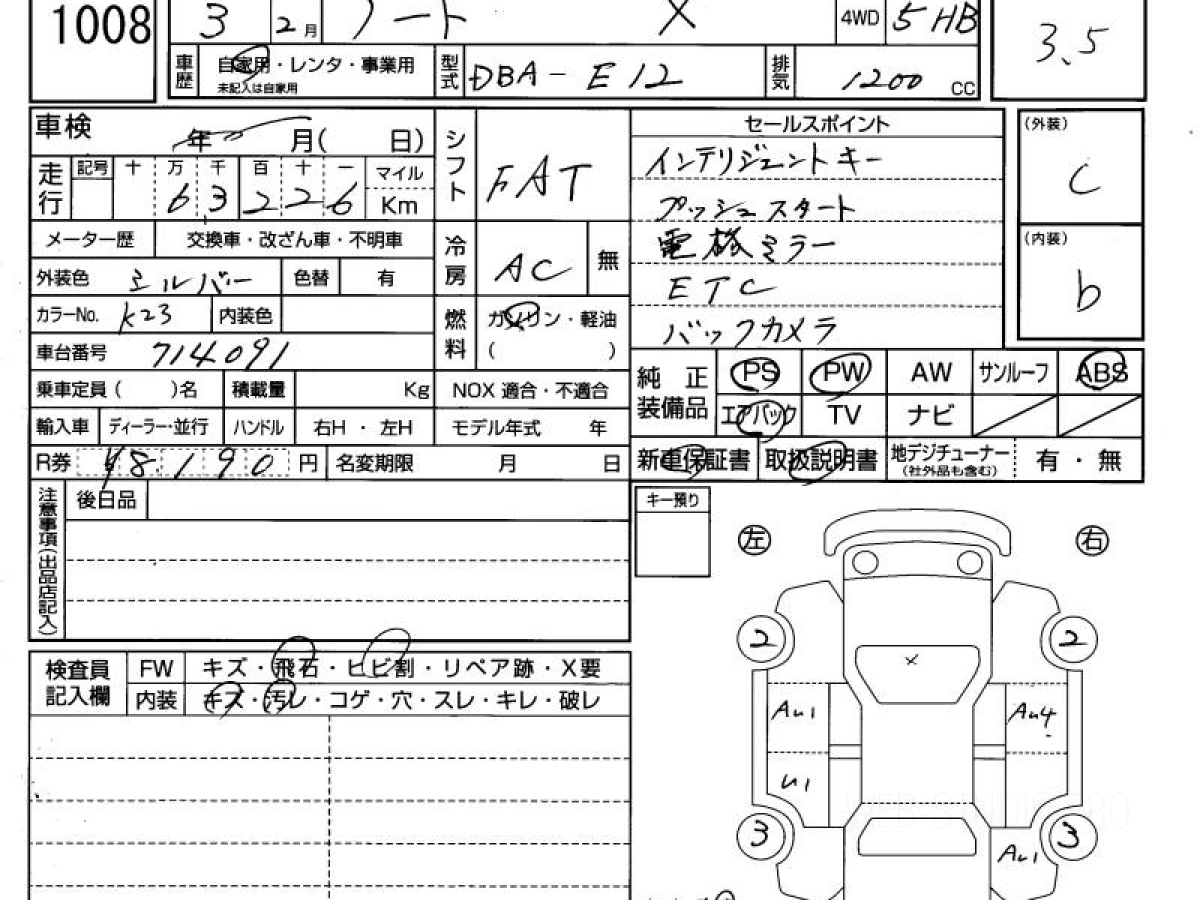 1008
3 2月 ノート X 4WD 5HB
3.5
車歴 自家用・レンタ・事業用
未記入は自家用
型式 DBA-E12
排気 1200 CC
車検 年 月( 日)
走行 記号 十 万 千 百 十 一 マイル
63226 Km
シフト FAT
メーター歴 交換車・改ざん車・不明車
外装色 シルバー 色替 有
冷房 AC 無
カラーNo. K23 内装色
燃料 ガソリン・軽油
( )
車台番号 714091
乗車定員( )名 積載量 Kg NOX 適合・不適合
輸入車 ディーラー・並行 ハンドル 右H・左H モデル年式 年
R券 ¥8.190 円 名変期限 月 日
セールスポイント
インテリジェントキー
プッシュスタート
電格ミラー
ETC
バックカメラ
(外装)
C
(内装)
b
純正装備品 PS PW AW サンルーフ ABS
エアバック TV ナビ
新車保証書 取扱説明書 地デジチューナー 有・無
(社外品も含む)
注意事項(出品店記入)
後日品
キー預り
左 右
検査員記入欄 FW キズ・飛石・ヒビ割・リペア跡・X要
内装 キズ・汚レ・コゲ・穴・スレ・キレ・破レ
2 2
×
AU1 AU4
U1
3 3
AU1